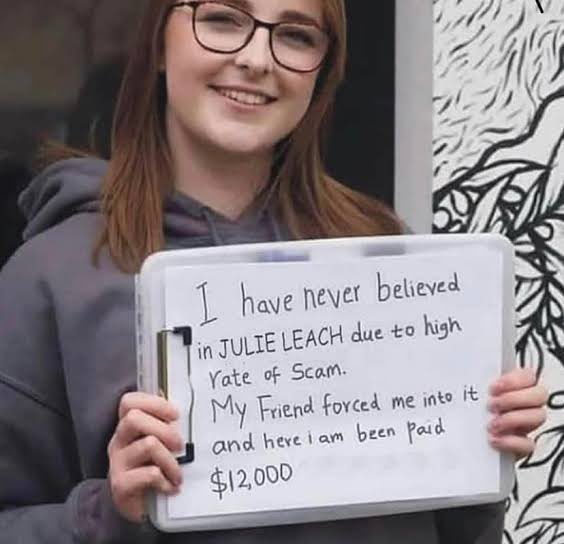 I have never believed
in JULIE LEACH due to high
rate of Scam.
My Friend forced me into it
and here i am been paid
$12,000